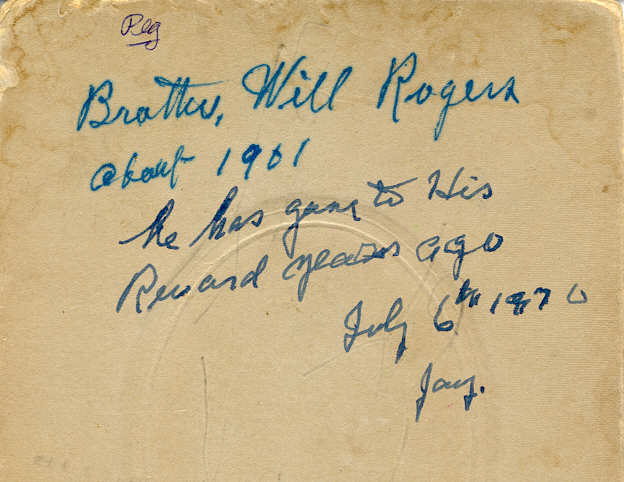 Reg
Brother, Will Rogers
about 1901
he has gone to His
Reward years ago
July 6th 1970
Jay.